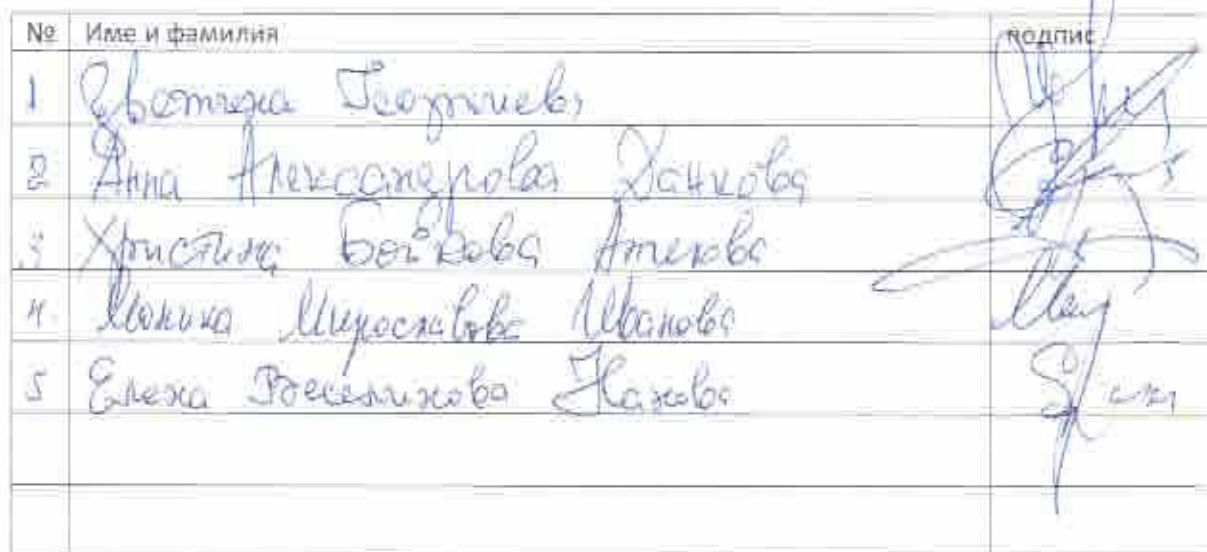 № Име и фамилия подпис
1 Цветелина Георгиева
2 Анна Александрова Данкова
3 Христина Бойкова
4. Моника Мирославова Иванова
5 Елена Веселинова